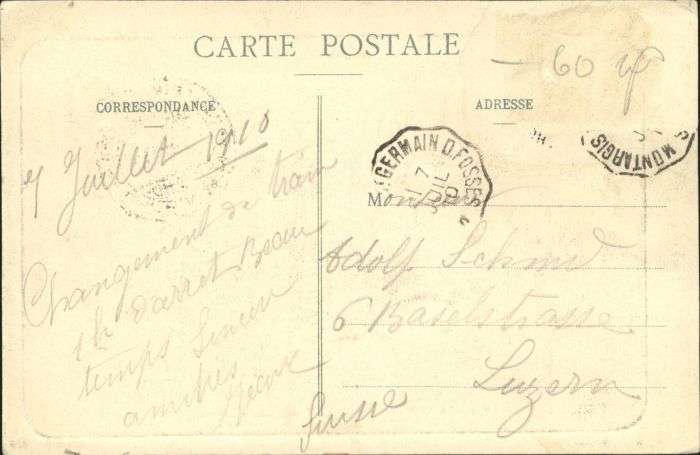 CARTE POSTALE
CORRESPONDANCE
ADRESSE
— 60
GERMAIN D.FOSSES
17
JUIL
10
MONTARGIS
7 Juillet 1910
Changement de train
1h d'arret Beau
temps
amitiés
Monsieur
Adolf Schmid
6 Baselstrasse
Luzern
Suisse